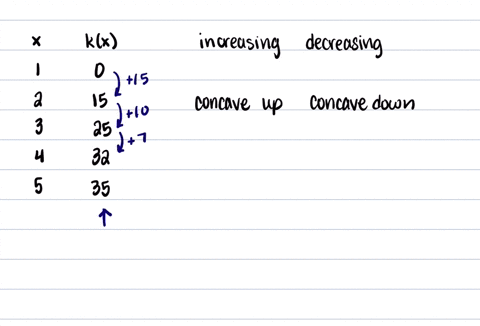 x k(x) increasing decreasing
1 0
+15
2 15 concave up concave down
+10
3 25
+7
4 32
5 35
↑